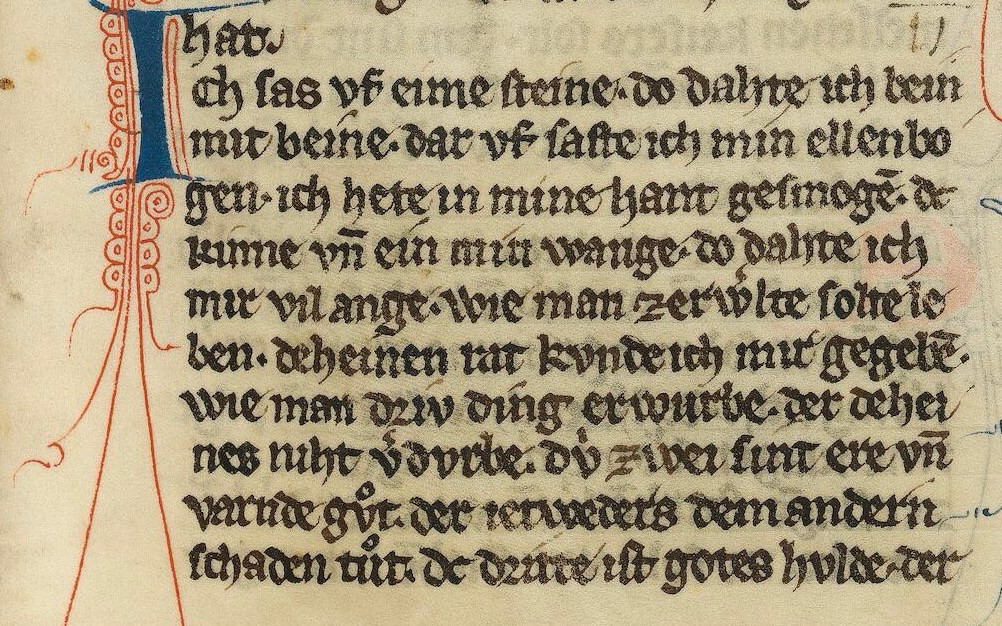 hat.
Ich sas vf eime steine. do dahte ich bein
mit beine. dar vf saste ich min ellenbo
gen. ich hete in mine hant gesmogē. dc
kinne vn̄ ein min wange. do dahte ich
mir vil ange. wie man zer wͤlte solte le
ben. deheinen rat kvnde ich mir gegebē.
wie man driv ding erwurbe. der dehei
nes niht v̾dvrbe. dv̍ zwei sint ere vn̄
varnde gvͦt. der ietweders dem andern
schaden tuͦt. dc dritte ist gotes hvlde. der